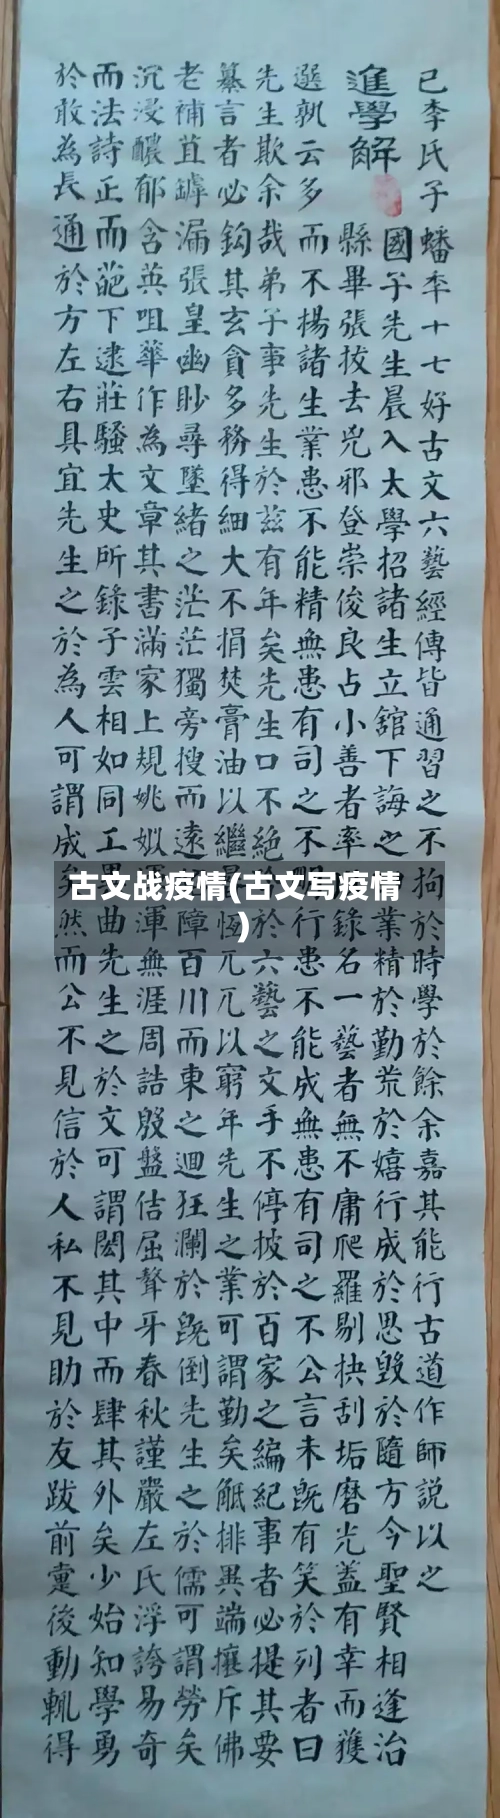 已李氏子蟠年十七好古文六藝經傳皆通習之不拘於時學於餘余嘉其能行古道作師説以之
進學解
國子先生晨入太學招諸生立舘下誨之業精於勤荒於嬉行成於思毀於隨方今聖賢相逢治
縣畢張拔去兇邪登崇俊良占小善者率錄名一藝者無不庸爬羅剔抉刮垢磨光蓋有幸而獲
選孰云多而不楊諸生業患不能精無患有司之不行患不能成無患有司之不公言未既有笑於列者曰
先生欺余哉弟子事先生於茲有年矣先生口不絕於六藝之文手不停披於百家之編紀事者必提其要
纂言者必鈎其玄貪多務得細大不捐焚膏油以繼恆兀兀以窮年先生之業可謂勤矣觝排異端攘斥佛
老補苴罅漏張皇幽眇尋墜緒之茫茫獨旁搜而遠障百川而東之迴狂瀾於既倒先生之於儒可謂勞矣
沉浸醲郁含英咀華作為文章其書滿家上規姚姒渾無涯周誥殷盤佶屈聱牙春秋謹嚴左氏浮誇易奇
而法詩正而葩下逮莊騷太史所錄子雲相如同工曲先生之於文可謂閎其中而肆其外矣少始知學勇
於敢為長通於方左右具宜先生之於為人可謂成矣然而公不見信於人私不見助於友跋前疐後動輒得
古文战疫情(古文写疫情
)